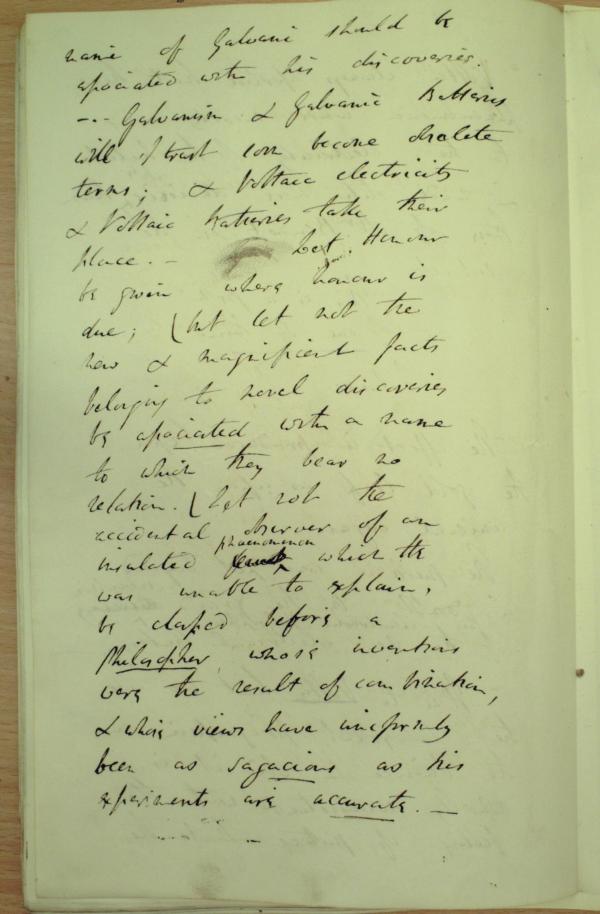 name of Galvani should be
associated with his discoveries.
-.- Galvanism & Galvanic Batteries
will I trust soon become obsolete
terms; & Voltaic electricity
& Voltaic Batteries take their
place. - Let Honour
be given where honour is
due; (but let not the
new & magnificent facts
belonging to novel discoveries
be associated with a name
to which they bear no
relation. (Let not the
accidental observer of an
phaenomenon
insulated which He
was unable to explain,
be classed before a
Philosopher whose inventions
were the result of combination,
& whose views have uniformly
been as sagacious as his
experiments are accurate. -